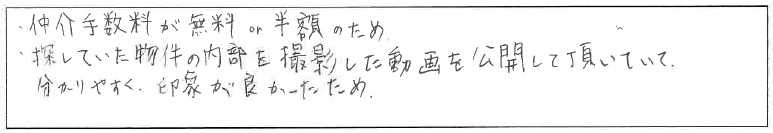 ・仲介手数料が無料 or 半額のため.
・探していた物件の内部を撮影した動画を公開して頂いていて.
分かりやすく、印象が良かったため.